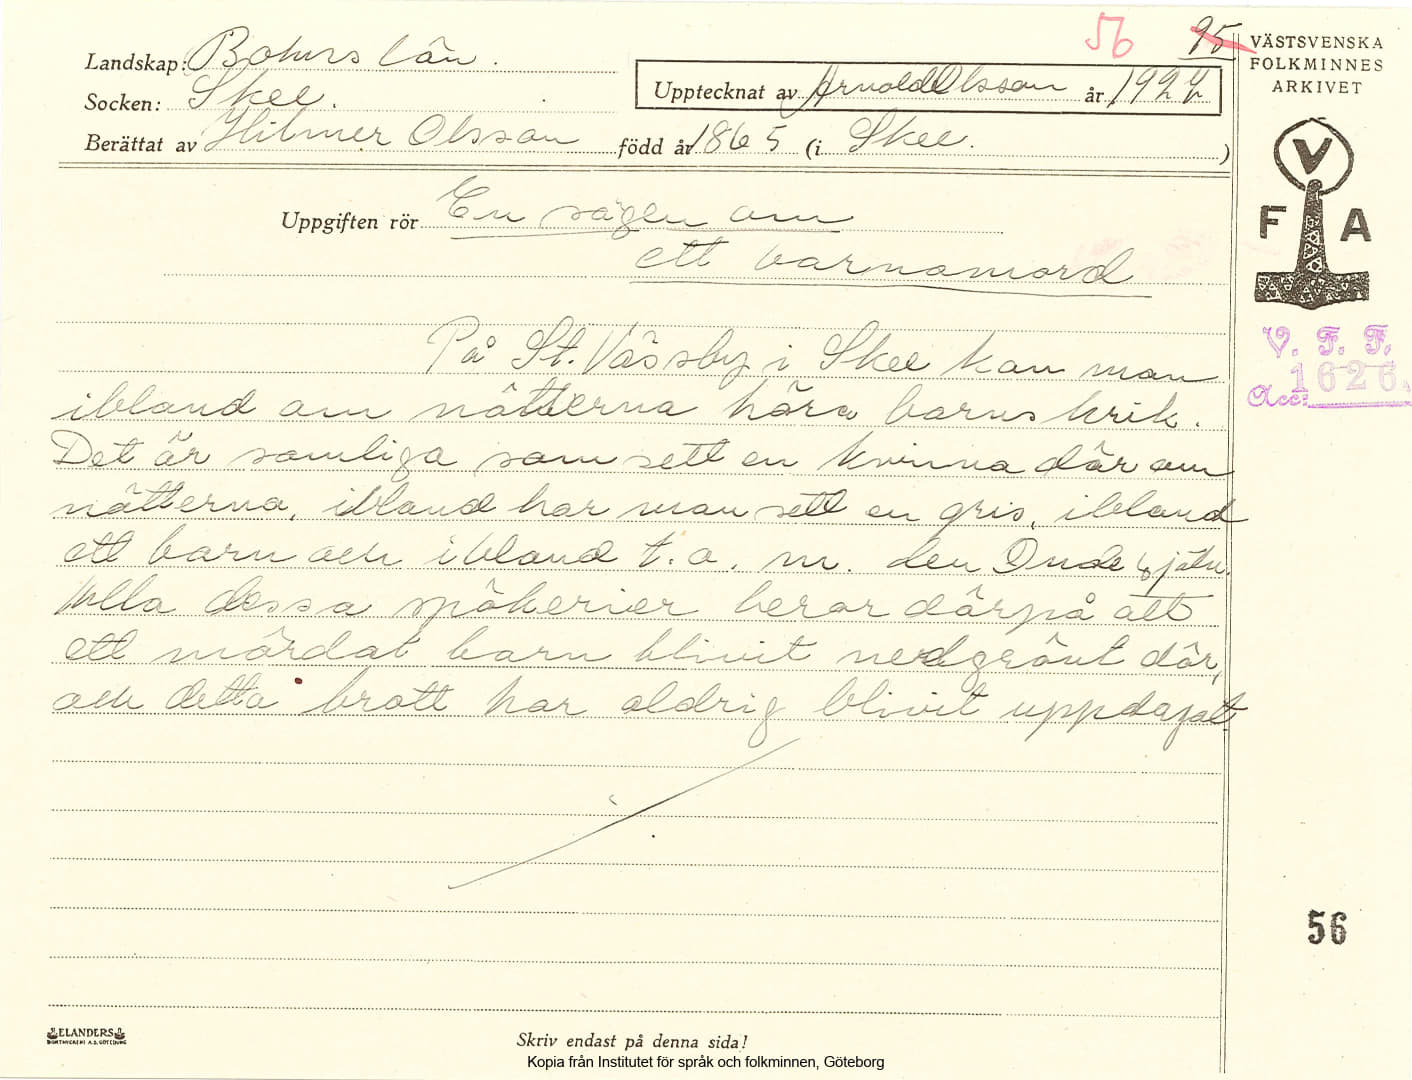 56 95
VÄSTSVENSKA
FOLKMINNES
ARKIVET
Landskap: Bohus län.
Socken: Skee.
Upptecknat av Arnold Olsson år 1927
Berättat av Hilmer Olsson född år 1865 (i Skee. )
Uppgiften rör En sägen om
ett barnamord
V
F A
V. F. F.
Acc: 1626.
På St. Vässby i Skee kan man
ibland om nätterna höra barnskrik.
Det är somliga som sett en kvinna där om
nätterna, ibland har man sett en gris, ibland
ett barn och ibland t. o. m. den Onde själv.
Alla dessa spökerier beror därpå att
ett mördat barn blivit nedgrävt där,
och detta brott har aldrig blivit uppdagat
56
ELANDERS
BOKTRYCKERI A.B. GÖTEBORG
Skriv endast på denna sida!
Kopia från Institutet för språk och folkminnen, Göteborg